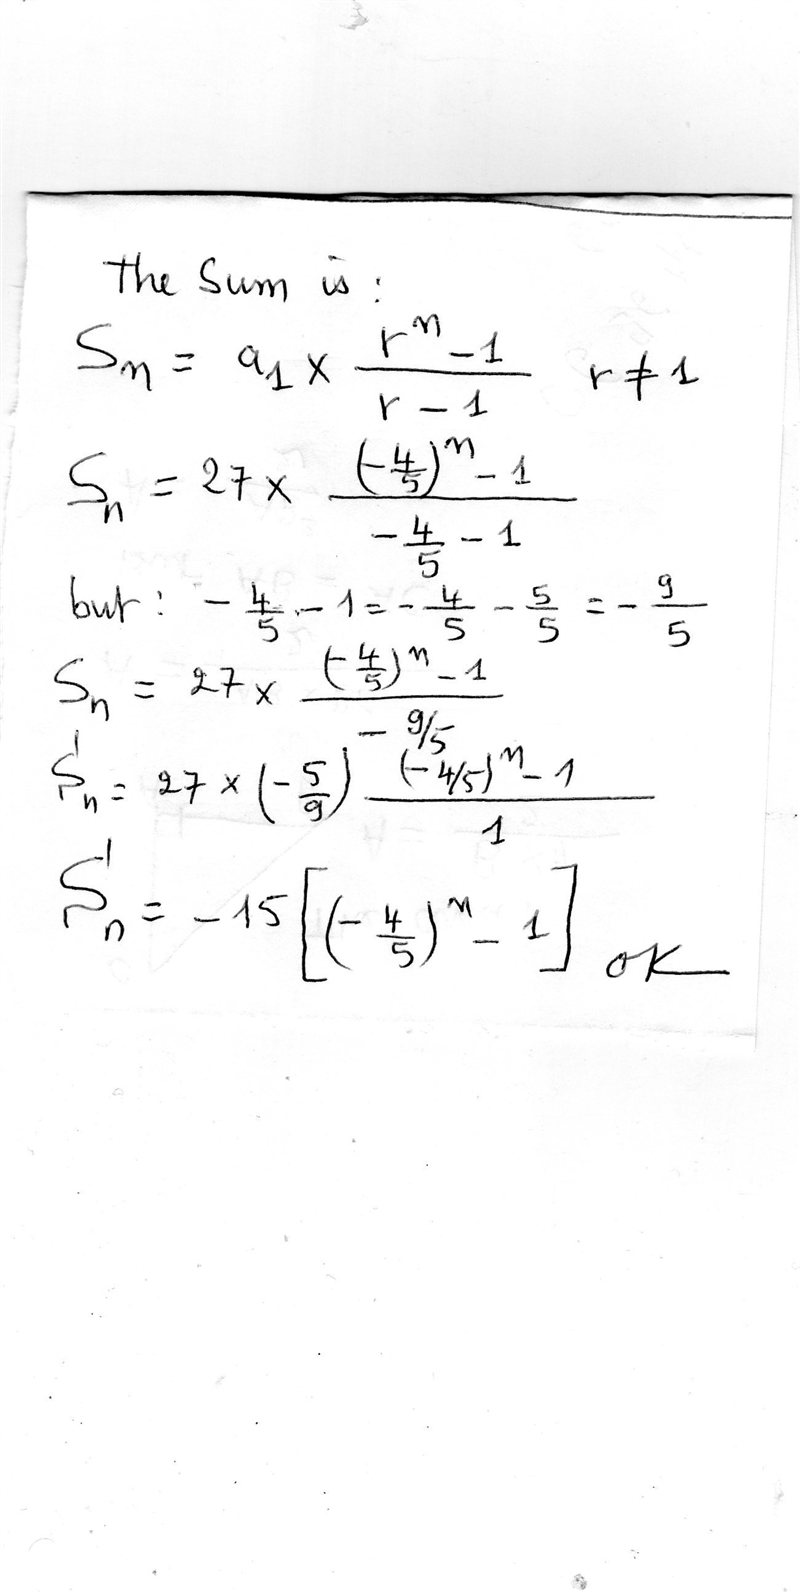 The Sum is:
Sn = a1 × (r^n - 1)/(r - 1) r ≠ 1
Sn = 27 × ((-4/5)^n - 1)/(-4/5 - 1)
but: -4/5 - 1 = -4/5 - 5/5 = -9/5
Sn = 27 × ((-4/5)^n - 1)/(-9/5)
Sn = 27 × (-5/9) ((-4/5)^n - 1)/1
Sn = -15 [(-4/5)^n - 1] OK